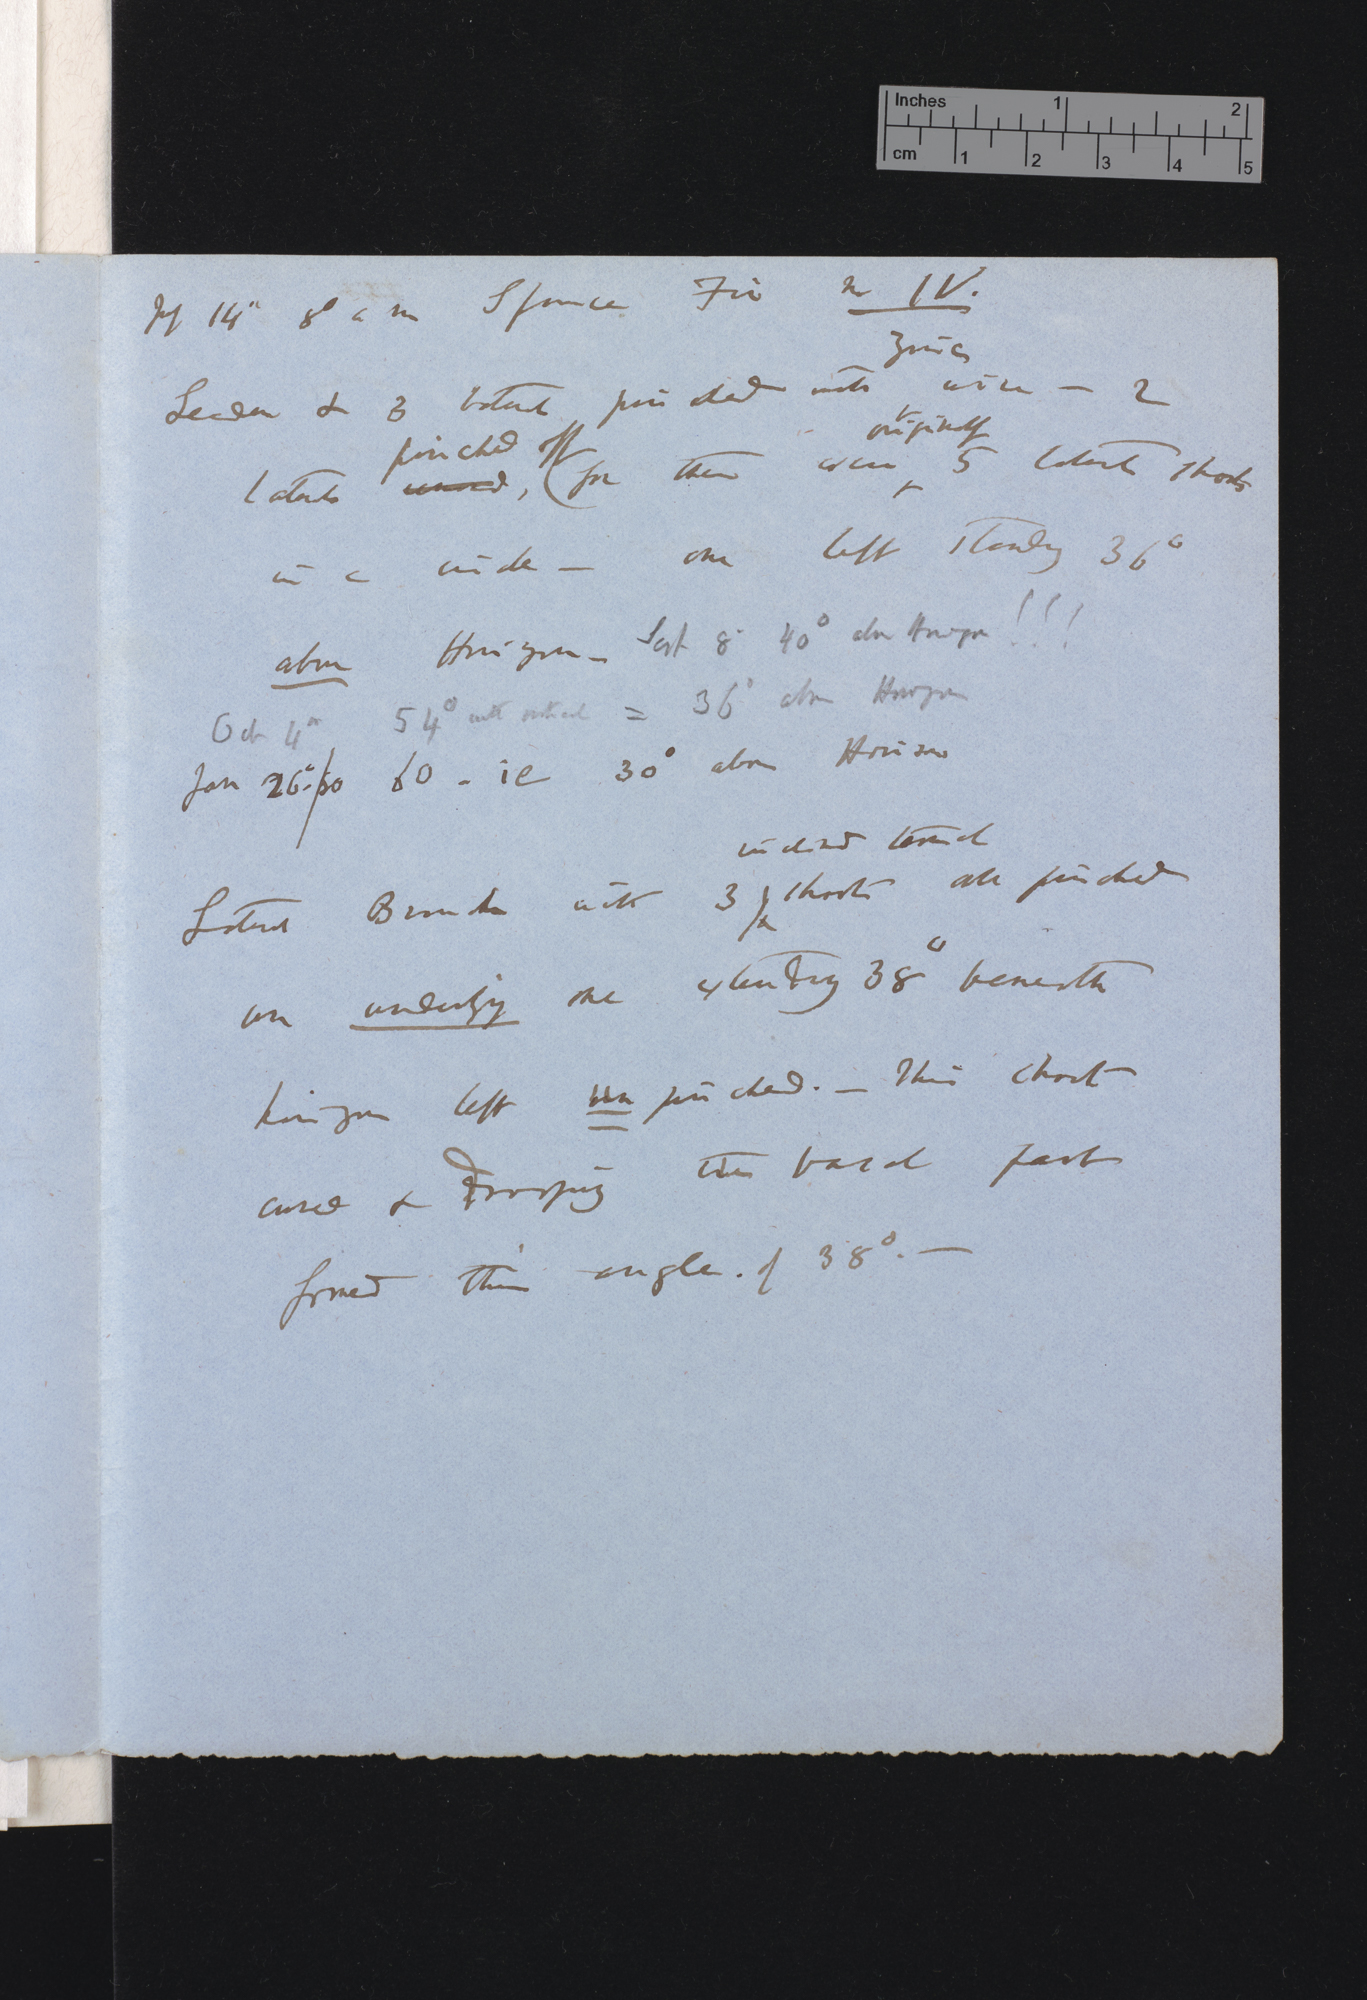 Inches 1 2
cm 1 2 3 4 5
July 14th 8° a m Spruce Fir No IV.
zinc
Leader & 3 lateral pinched with wire — 2
pinched off originally
laterals, (for there were 5 lateral shoots
in a circle — one left standing 36°
above Horizon — Sept 8 40° above Horizon !!!
Oct 4th 54° with vertical = 36° above Horizon
Jan 26th/80 60 - ie 30° above Horizon
inclined terminal
Lateral Branch with 3 shoots all pinched
an underlying one extending 38° beneath
horizon left unpinched. — This shoot
curved & drooping the basal part
formed this angle of 38°. —